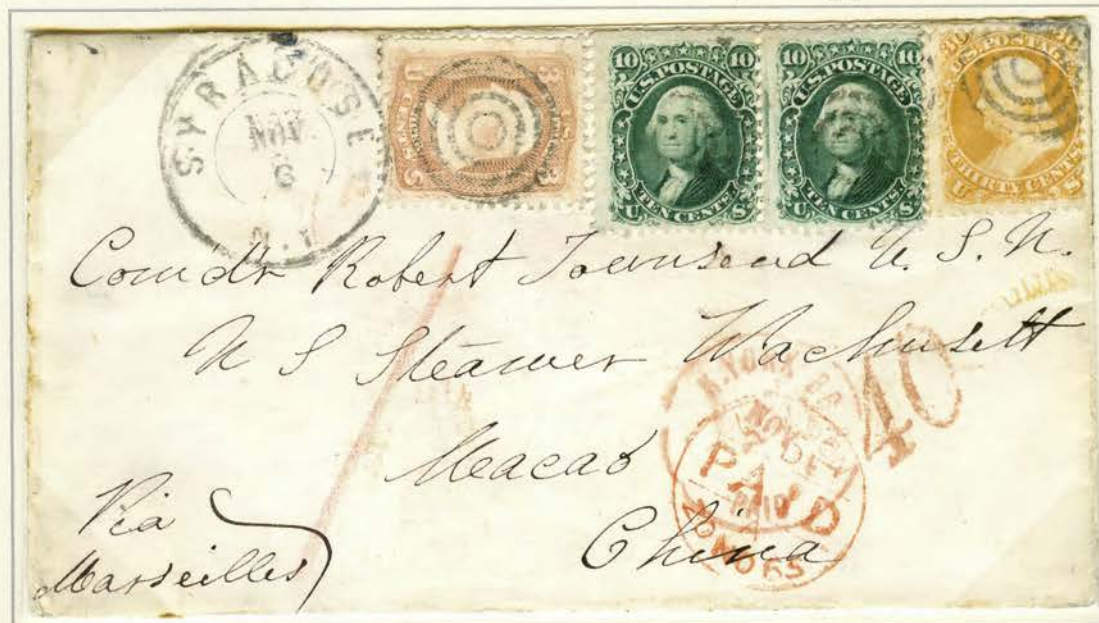 SYRACUSE
NOV
6
N.Y.
U 3 3 S
10 U.S.POSTAGE 10
TEN CENTS
U S
10 U.S.POSTAGE 10
TEN CENTS
U S
30 30
THIRTY CENTS
U S
Comd'r Robert Townsend U. S. N.
U S Steamer Wachusett
Macao
China
Via
Marseilles
40
N. YORK
NOV
PAID
PAID
65